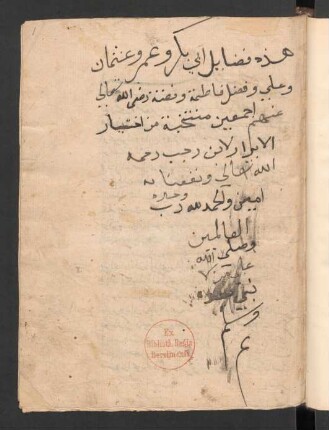 هذه فضايل ابي بكر وعمر وعثمان
وعلي وفضل فاطمة وفضة رضي الله تعالى
عنهم اجمعين منتخبة من اختيار
الابرار لابن رجب رحمه
الله تعالى ونفعنا به
امين والحمد لله رب
العالمين
وصلى الله
على من لا
نبي بعده
وسلم
تم
Ex
Biblioth. Regia
Berolinensi